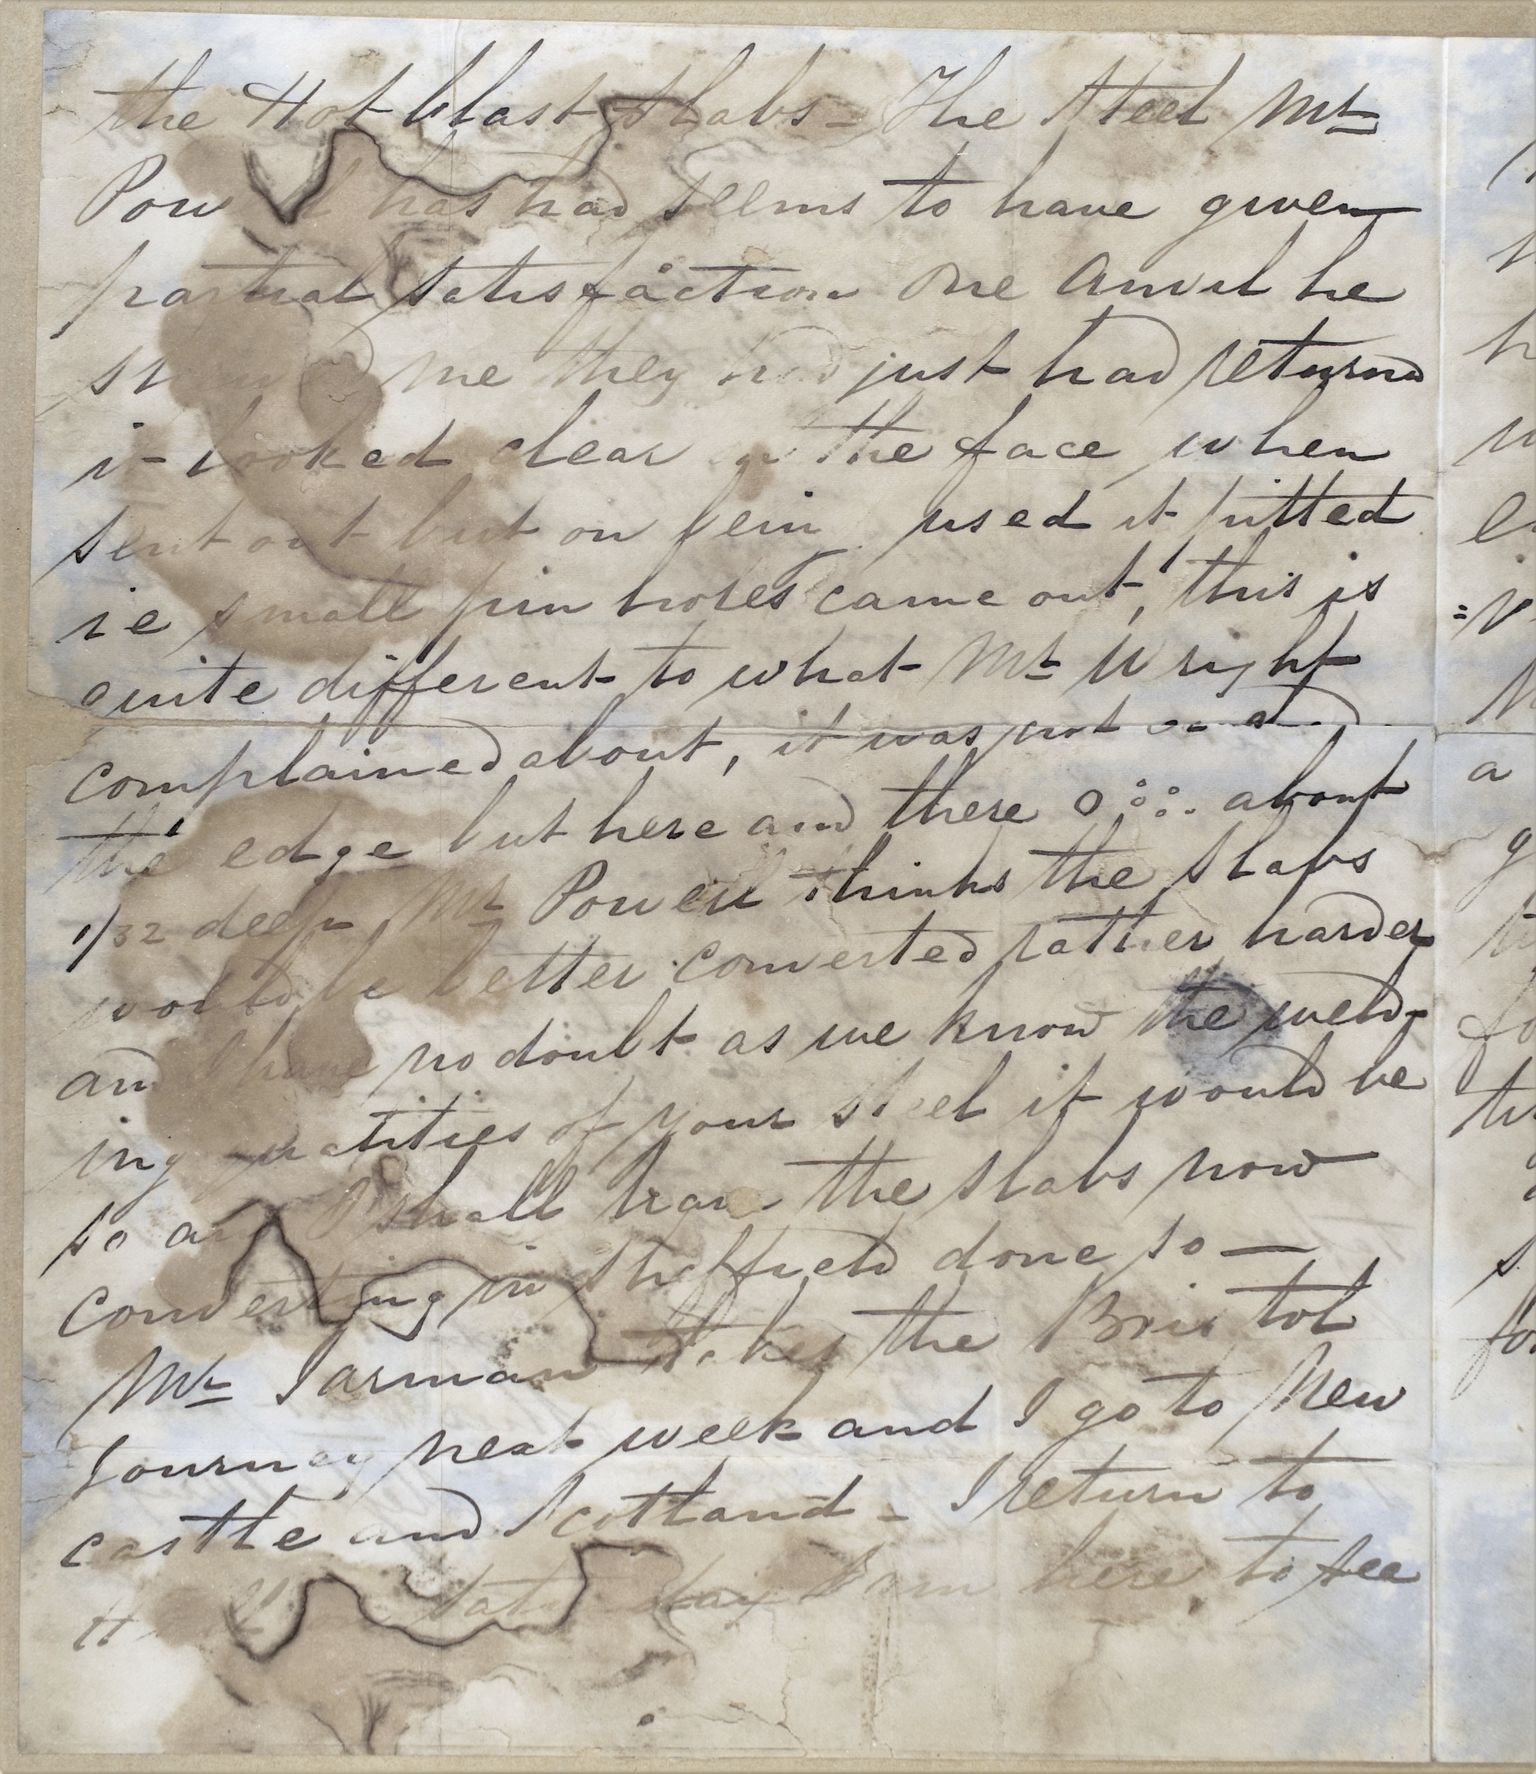 the Hot blast slabs - The steel Mr
Powell has had seems to have given
partial satisfaction One Anvil he
showed me they had just had returnd
it looked clear on the face when
sent out but on being used it pitted
ie small pin holes came out, this is
quite different to what Mr Wright
complained about, it was not round
the edge but here and there o°°°. about
1/32 deep Mr Powell thinks the slabs
would be better converted rather harder
and I have no doubt as we know the weld-
ing qualities of your steel it would be
so and I shall have the slabs now
converting in Sheffield done so —
Mr Jarman takes the Bristol
Journey next week and I go to New
castle and Scotland - I return to
day I am here to see